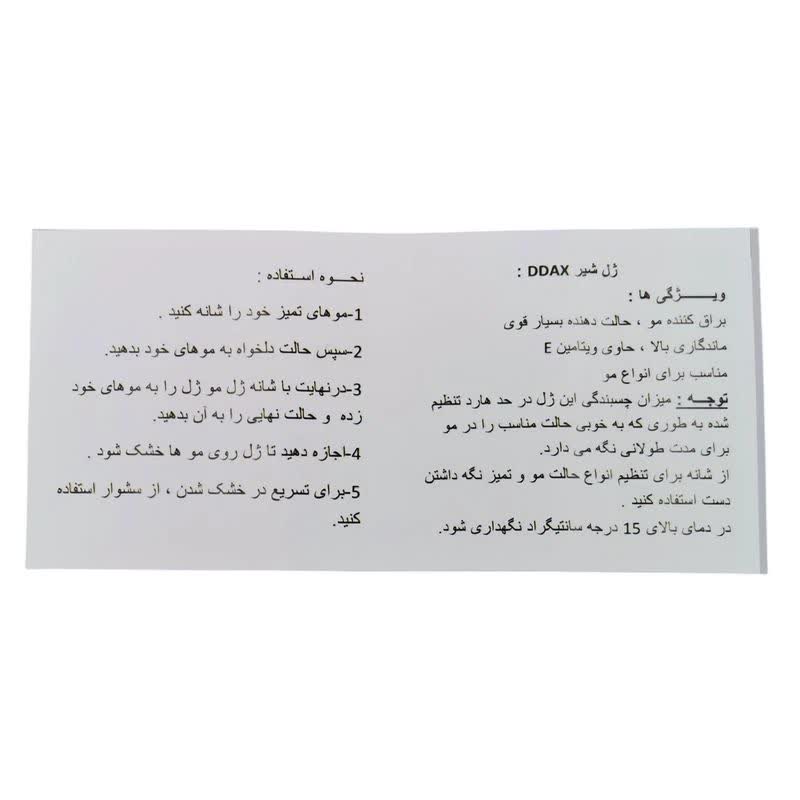 ژل شیر DDAX :
ویـــــژگی ها :
براق کننده مو ، حالت دهنده بسیار قوی
ماندگاری بالا ، حاوی ویتامین E
مناسب برای انواع مو
توجـه : میزان چسبندگی این ژل در حد هارد تنظیم
شده به طوری که به خوبی حالت مناسب را در مو
برای مدت طولانی نگه می دارد.
از شانه برای تنظیم انواع حالت مو و تمیز نگه داشتن
دست استفاده کنید .
در دمای بالای 15 درجه سانتیگراد نگهداری شود.
نحـــوه اسـتـفاده :
1-موهای تمیز خود را شانه کنید .
2-سپس حالت دلخواه به موهای خود بدهید.
3-درنهایت با شانه ژل مو ژل را به موهای خود
زده و حالت نهایی را به آن بدهید.
4-اجازه دهید تا ژل روی مو ها خشک شود .
5-برای تسریع در خشک شدن ، از سشوار استفاده
کنید.